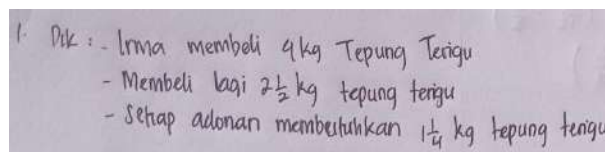 1. Dik : - Irma membeli 4 kg Tepung Terigu
- Membeli lagi 2 1/2 kg tepung terigu
- Setiap adonan membutuhkan 1 1/4 kg tepung terigu